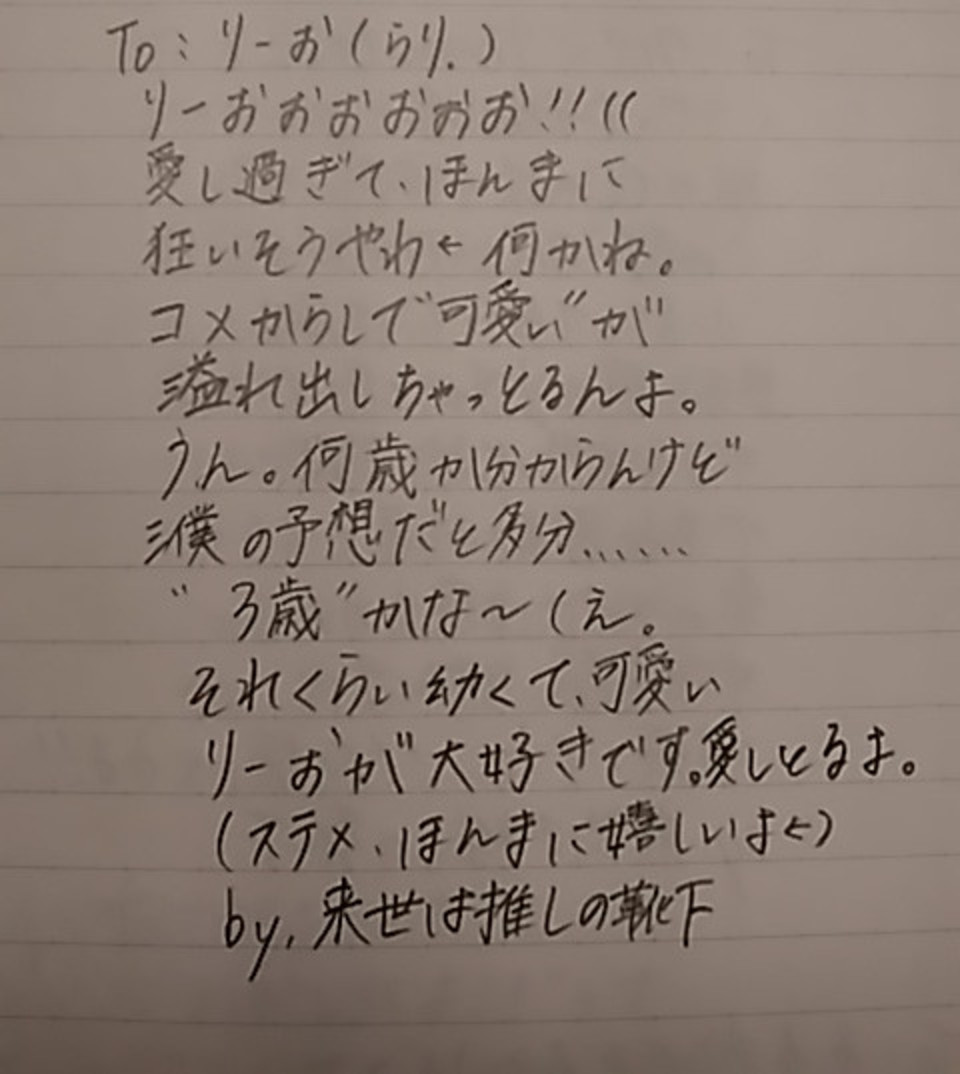 To：りーお(らり.)
りーおおおおおお!!((
愛し過ぎて、ほんまに
狂いそうやわ← 何かね。
コメからしで"可愛い"が
溢れ出しちゃっとるんよ。
うん。何歳か分からんけど
僕の予想だと多分......
"3歳"かな〜(え。
それくらい幼くて、可愛い
りーおが大好きです。愛しとるよ。
(ステメ、ほんまに嬉しいよ←)
by,来世は推しの靴下